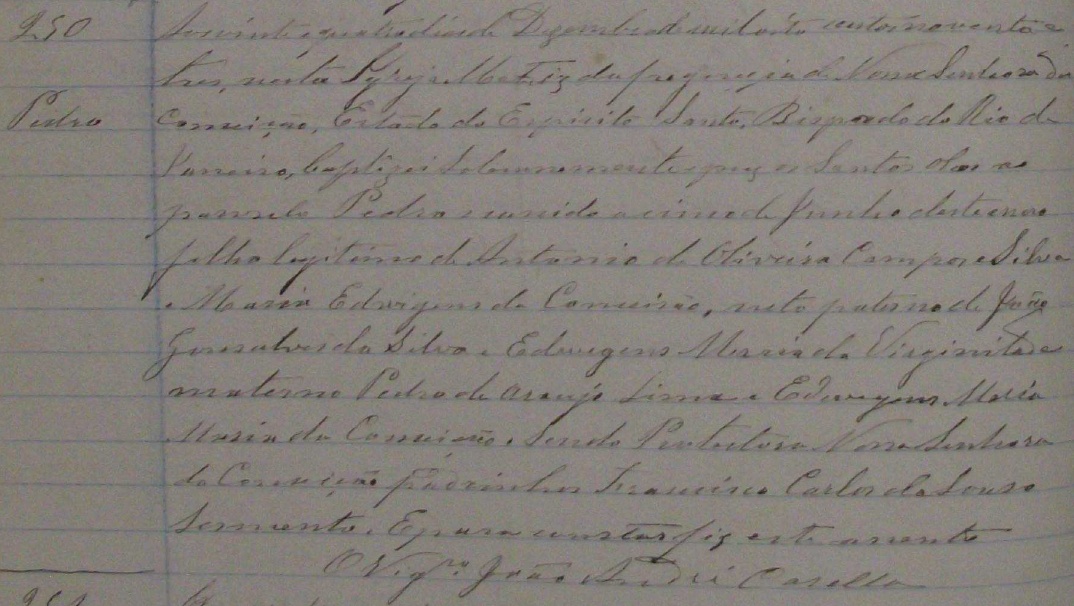 250
Aos vinte e quatro dias de Dezembro de mil oito centos noventa e
tres, nesta Igreja Matriz da freguezia de Nossa Senhora da
Pedro
Conceição, Estado do Espirito Santo, Bispado do Rio de
Janeiro, baptizei solemnemente e puz os Santos oleos ao
parvulo Pedro nascido a cinco de Junho deste anno
filho legitimo de Antonio de Oliveira Campos e Silva
e Maria Edwigens da Conceição, neto paterno de João
Gonsalves da Silva e Edwigens Maria da Virginitade
materno Pedro de Araujo Lima e Edwigens Maria
Maria da Conceição. Sendo Protectora Nossa Senhora
da Conceição padrinhos Francisco Carlos de Souza
Sarmento. E para constar fiz este assento
O Vigro João André Casella
251